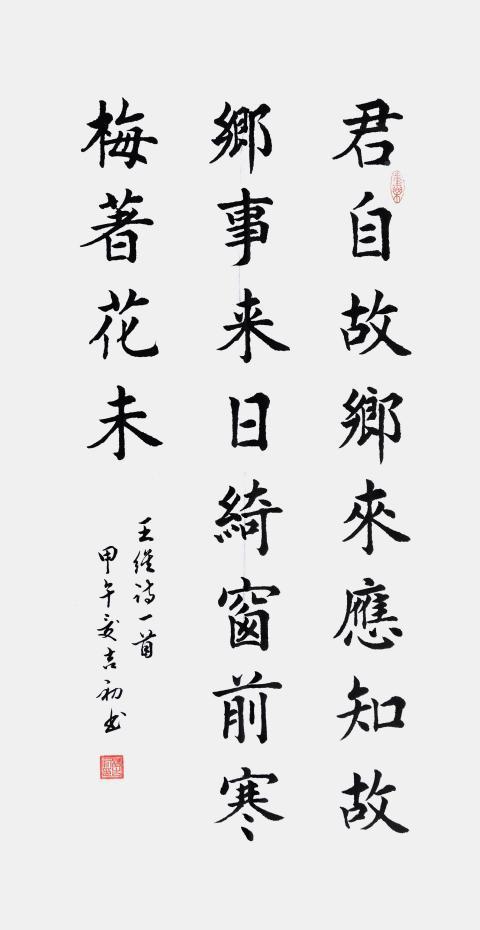 君自故鄉來應知故
鄉事来日綺窗前寒
梅著花未
王维诗一首
甲午夏吉初书